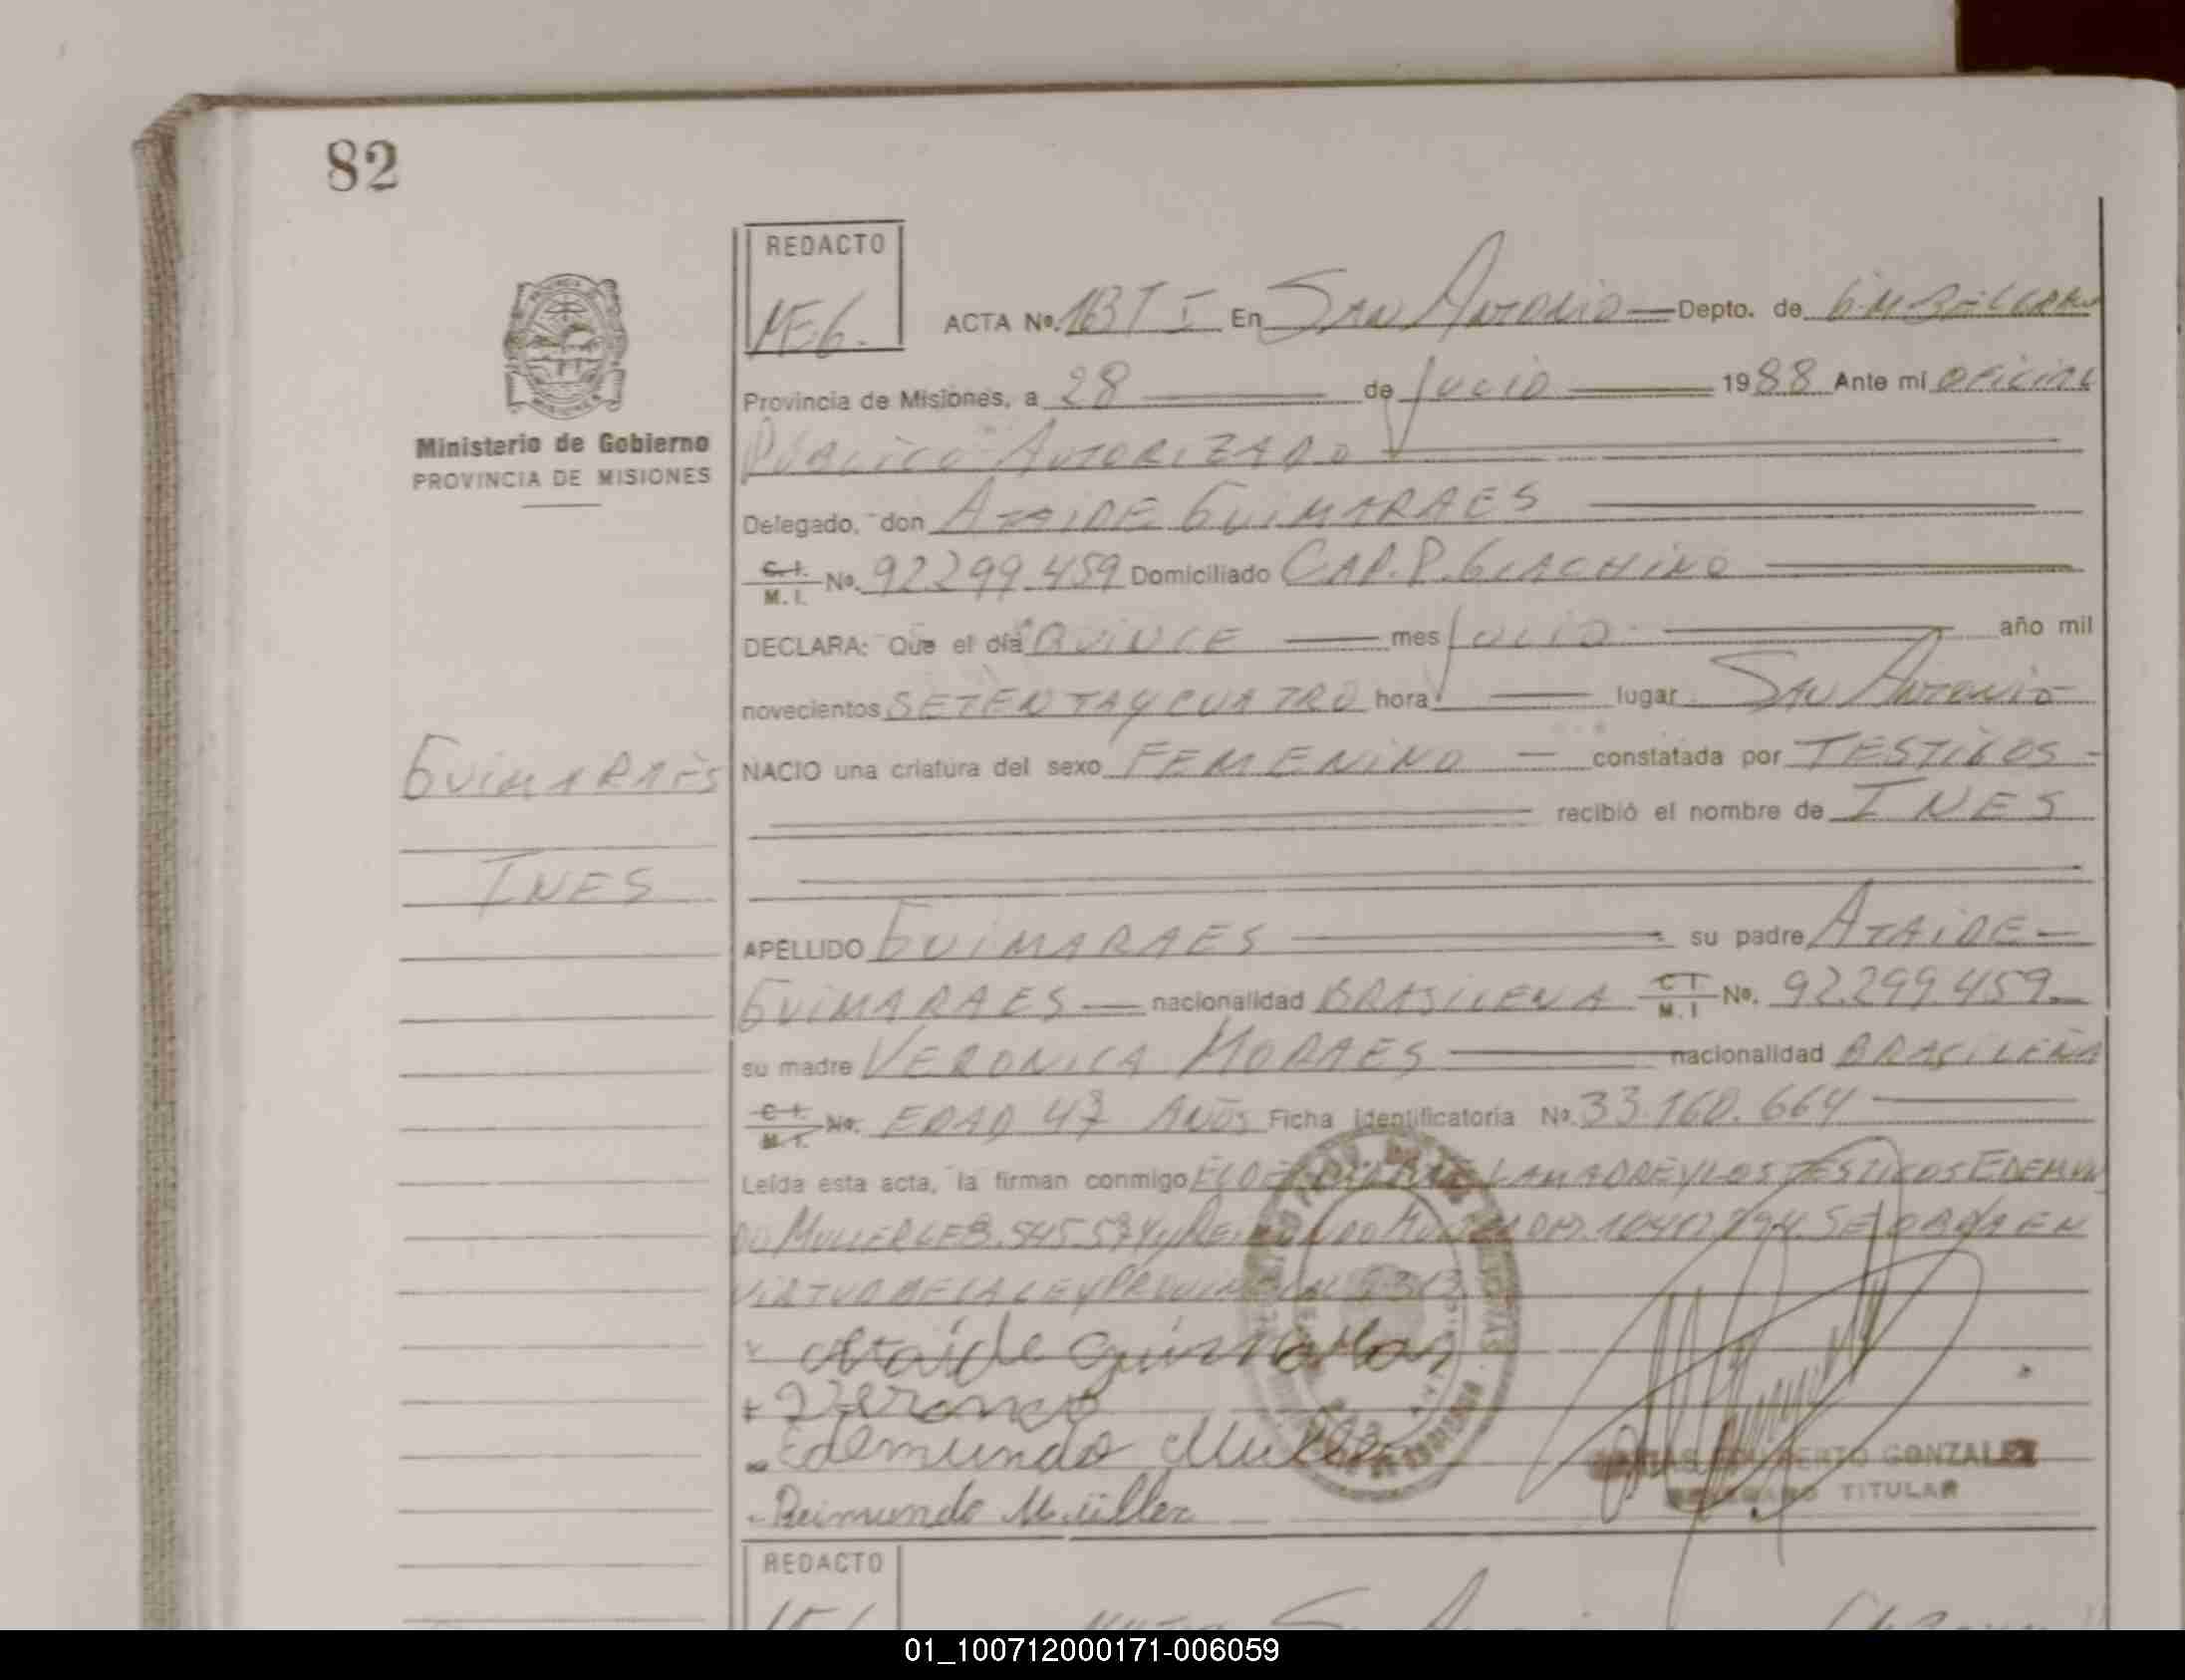 82
REDACTO
M.E.G.
ACTA Nº. 163 T I En SAN ANTONIO Depto. de G.M. BELGRANO
Provincia de Misiones, a 28 de JULIO 1988 Ante mi OFICIAL
PUBLICO AUTORIZADO
Ministerio de Gobierno
PROVINCIA DE MISIONES
Delegado, don ATAIDE GUIMARAES
C. I. M. I. No. 92.299.459 Domiciliado CAP. P. GIACHINO
DECLARA: Que el día QUINCE mes JULIO año mil
novecientos SETENTA Y CUATRO hora lugar SAN ANTONIO
GUIMARAES
NACIO una criatura del sexo FEMENINO constatada por TESTIGOS
recibió el nombre de INES
INES
APELLIDO GUIMARAES su padre ATAIDE
GUIMARAES nacionalidad BRASILENA C I M. I No. 92.299.459
su madre VERONICA MORAES nacionalidad BRASILEÑA
C. I. M. I. No. EDAD 47 AÑOS Ficha identificatoria Nº. 33.160.664
Leída esta acta, la firman conmigo LA MADRE Y LOS TESTIGOS EDEMUN
DO MULLER LE 8.545.574 y SE LABRA EN
VIRTUD DE LA LEY PROVINCIAL
Ataide
Edemundo Muller
Reimundo Müller
GONZALEZ
TITULAR
REDACTO
01_100712000171-006059